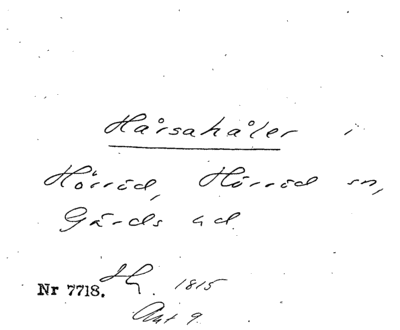 Hårsahåler i
Hörröd, Hörröd sn,
Gärds hd.
Nr 7718. 1815
Akt 9.